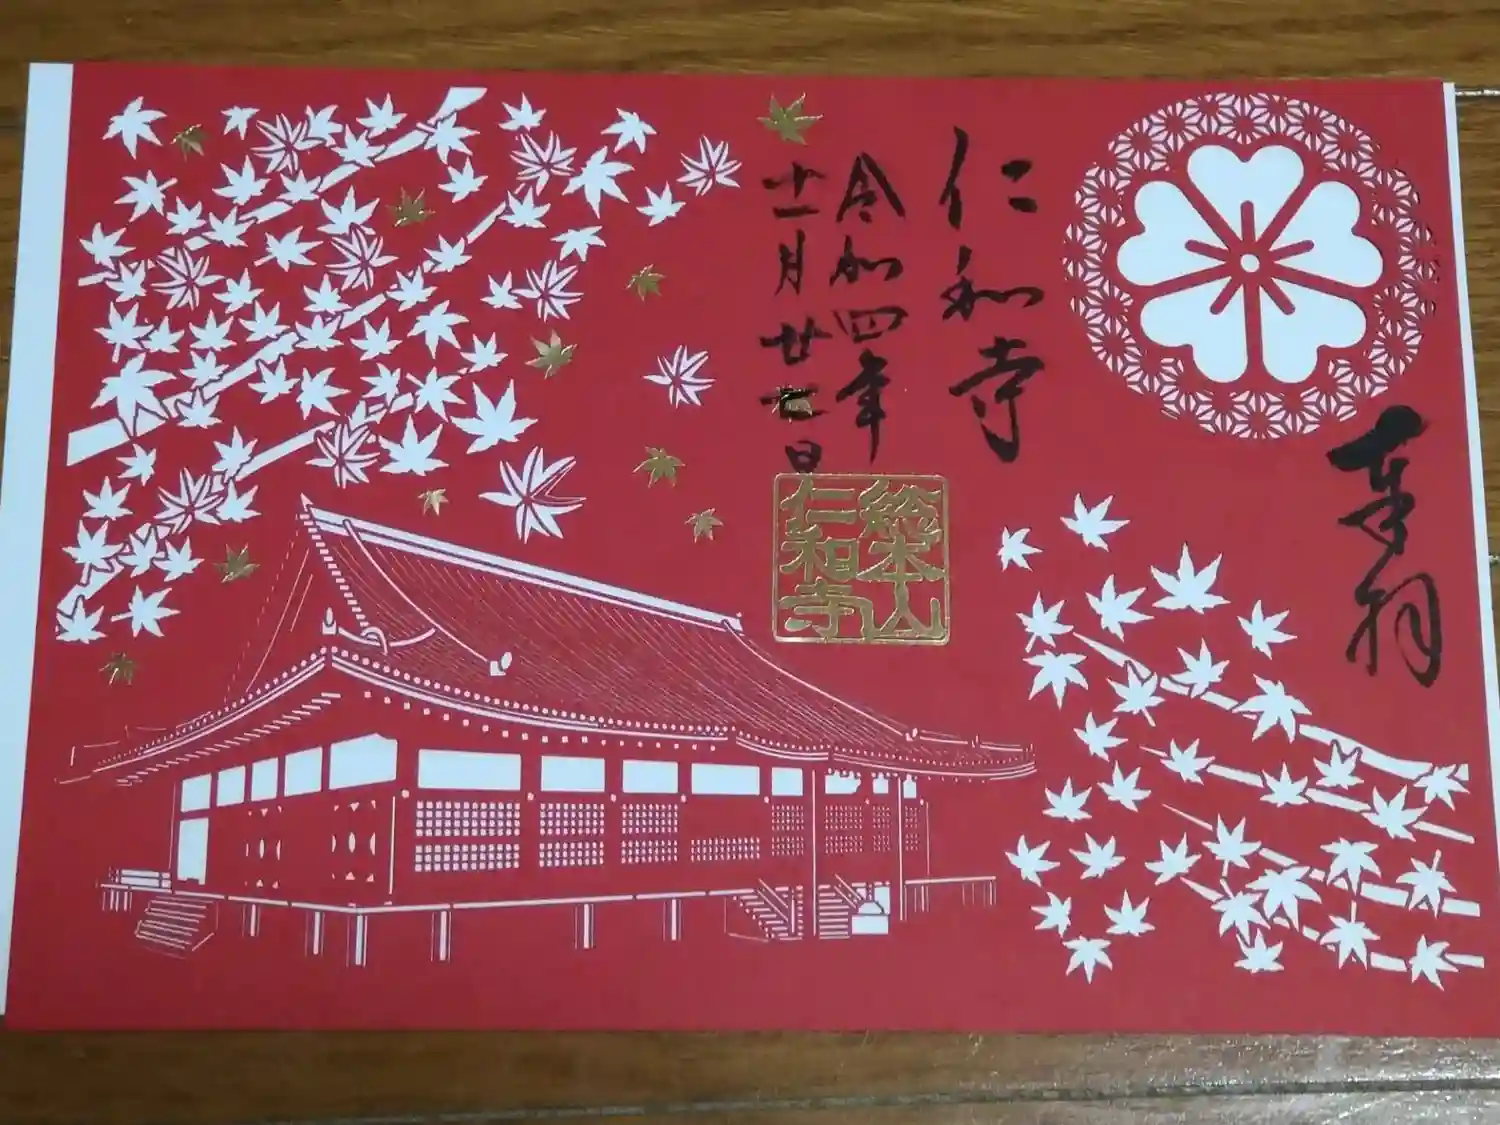 奉拝
仁和寺
令和四年
十一月廿七日
総本山
仁和寺